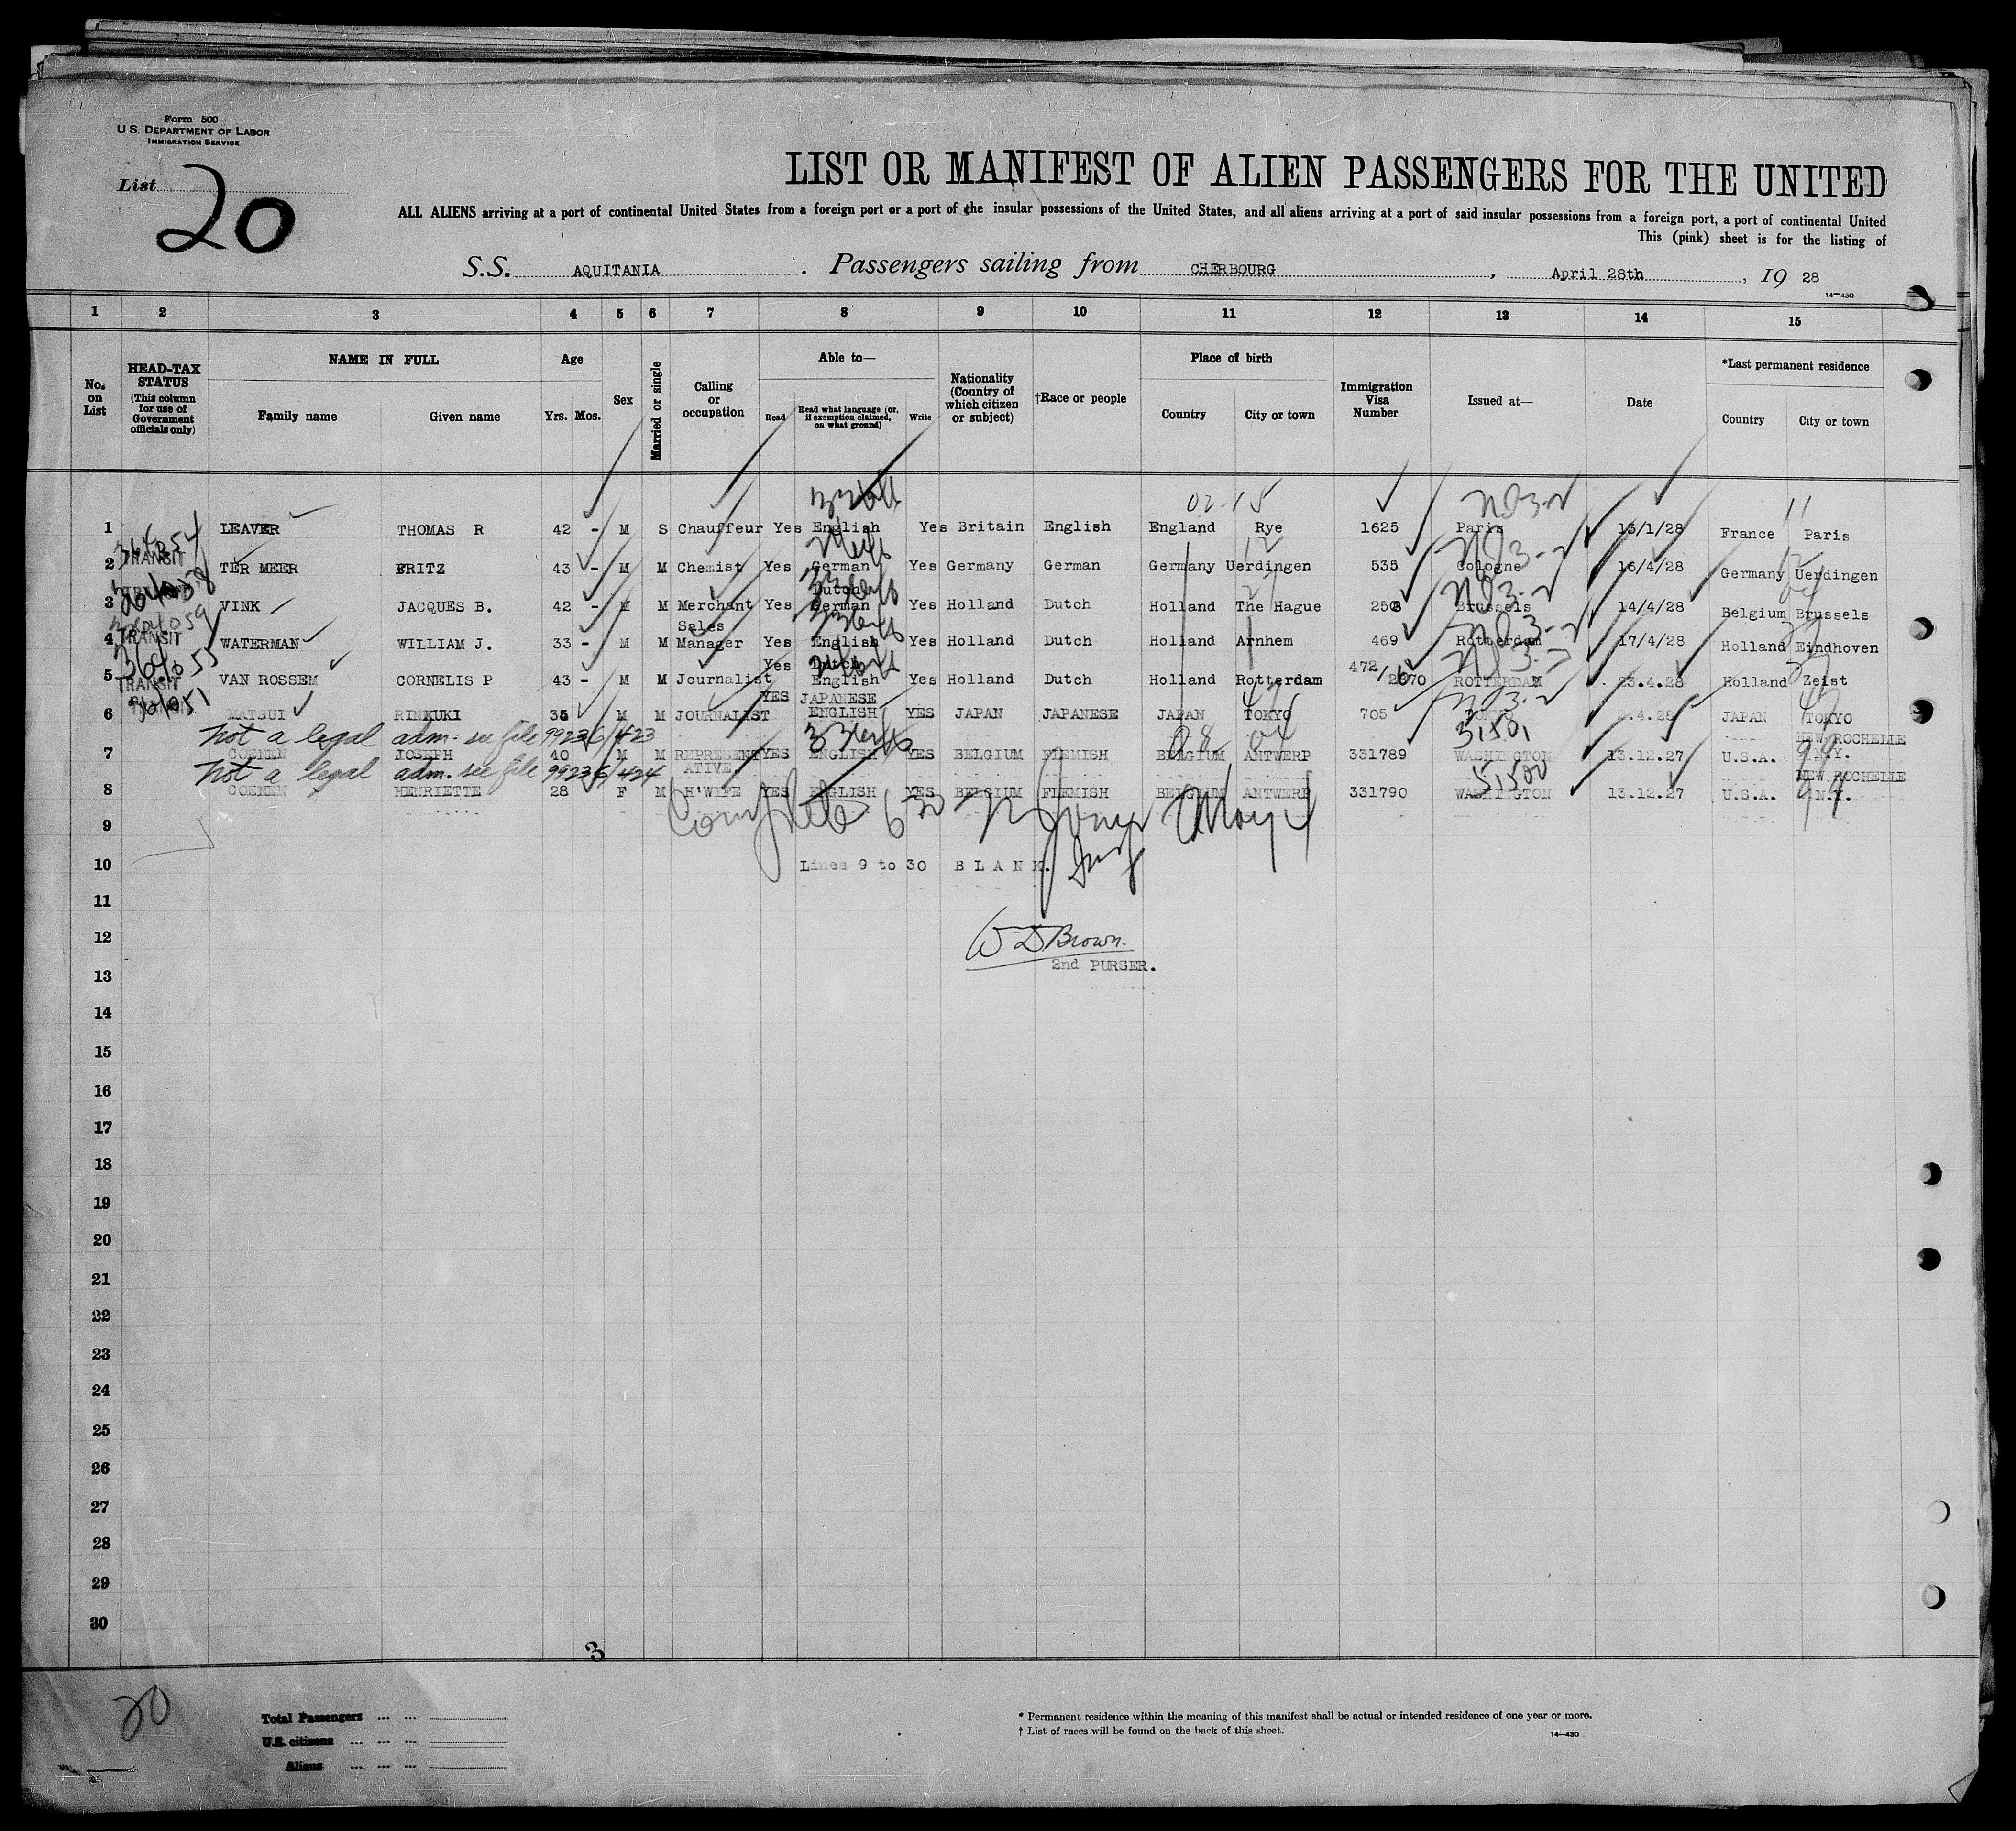 Form 500
U.S. DEPARTMENT OF LABOR
IMMIGRATION SERVICE
List 20
LIST OR MANIFEST OF ALIEN PASSENGERS FOR THE UNITED
ALL ALIENS arriving at a port of continental United States from a foreign port or a port of the insular possessions of the United States, and all aliens arriving at a port of said insular possessions from a foreign port, a port of continental United
This (pink) sheet is for the listing of
S.S. AQUITANIA . Passengers sailing from CHERBOURG , April 28th , 19 28
14-430
1 2 3 4 5 6 7 8 9 10 11 12 13 14 15
No. on List
HEAD-TAX STATUS (This column for use of Government officials only)
NAME IN FULL
Family name Given name
Age
Yrs. Mos.
Sex
Married or single
Calling or occupation
Able to—
Read Read what language (or, if exemption claimed, on what ground) Write
Nationality (Country of which citizen or subject)
†Race or people
Place of birth
Country City or town
Immigration Visa Number
Issued at—
Date
*Last permanent residence
Country City or town
02-15
1 LEAVER THOMAS R 42 - M S Chauffeur Yes English Yes Britain English England Rye 1625 Paris 13/1/28 France Paris
TRANSIT
2 TER MEER FRITZ 43 - M M Chemist Yes German Yes Germany German Germany Uerdingen 535 Cologne 16/4/28 Germany Uerdingen
Dutch
3 VINK JACQUES B. 42 - M M Merchant Yes German Yes Holland Dutch Holland The Hague 14/4/28 Belgium Brussels
Sales
TRANSIT
4 WATERMAN WILLIAM J. 33 - M M Manager Yes English Yes Holland Dutch Holland Arnhem 469 Rotterdam 17/4/28 Holland Eindhoven
Yes Dutch 472/
5 TRANSIT VAN ROSSEM CORNELIS P 43 - M M Journalist English Yes Holland Dutch Holland Rotterdam ROTTERDAM 23.4.28 Holland Zeist
YES JAPANESE
6 MATSUI RINKUKI M M JOURNALIST ENGLISH YES JAPAN JAPANESE JAPAN TOKYO 705 JAPAN TOKYO
Not a legal adm. see file 99236/423
NEW ROCHELLE
7 COENEN JOSEPH 40 M M REPRESENT YES ENGLISH YES BELGIUM FLEMISH BELGIUM ANTWERP 331789 WASHINGTON 13.12.27 U.S.A. N.Y.
ATIVE
Not a legal adm. see file 99236/424
NEW ROCHELLE
8 COENEN HENRIETTE 28 F M H'WIFE YES ENGLISH YES BELGIUM FLEMISH BELGIUM ANTWERP 331790 WASHINGTON 13.12.27 U.S.A. N.Y.
Complete 6 30
9
10 Lines 9 to 30 BLANK.
11
12 W D Brown.
2nd PURSER.
13
14
15
16
17
18
19
20
21
22
23
24
25
26
27
28
29
30
3
20
Total Passengers ... ...
U.S. citizens ... ... ...
Aliens ... ... ...
* Permanent residence within the meaning of this manifest shall be actual or intended residence of one year or more.
† List of races will be found on the back of this sheet.
14-430